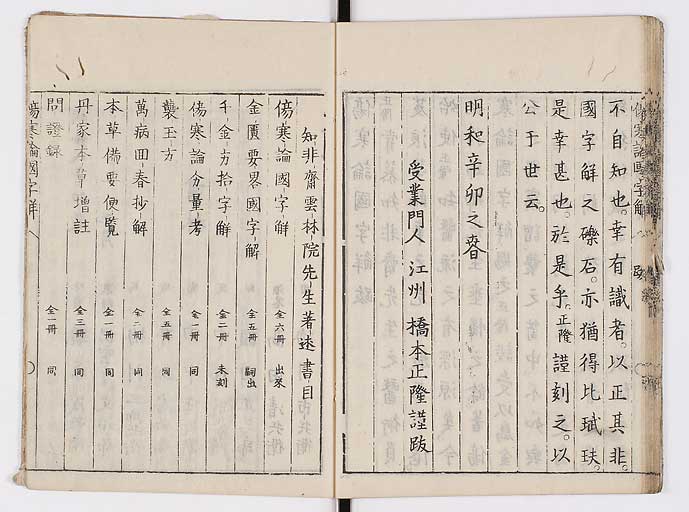 不自知也。幸有識者。以正其非。
國字解之礫石。亦猶得比珷玞。
是幸甚也。於是乎。正隆謹刻之。以
公于世云。
明和辛卯之春
受業門人 江州 橋本正隆謹跋
知非齋雲林院先生著述書目
傷寒論國字解 全六冊 出來
金匱要畧國字解 全五冊 嗣出
千金方拾字解 全二冊 未刻
傷寒論分量考 全一冊 同
襲玉方 全五冊 同
萬病回春抄解 全二冊 同
本草備要便覧 全一冊 同
丹家本草増註 全三冊 同
問證録 全一冊 同
傷寒論國字解